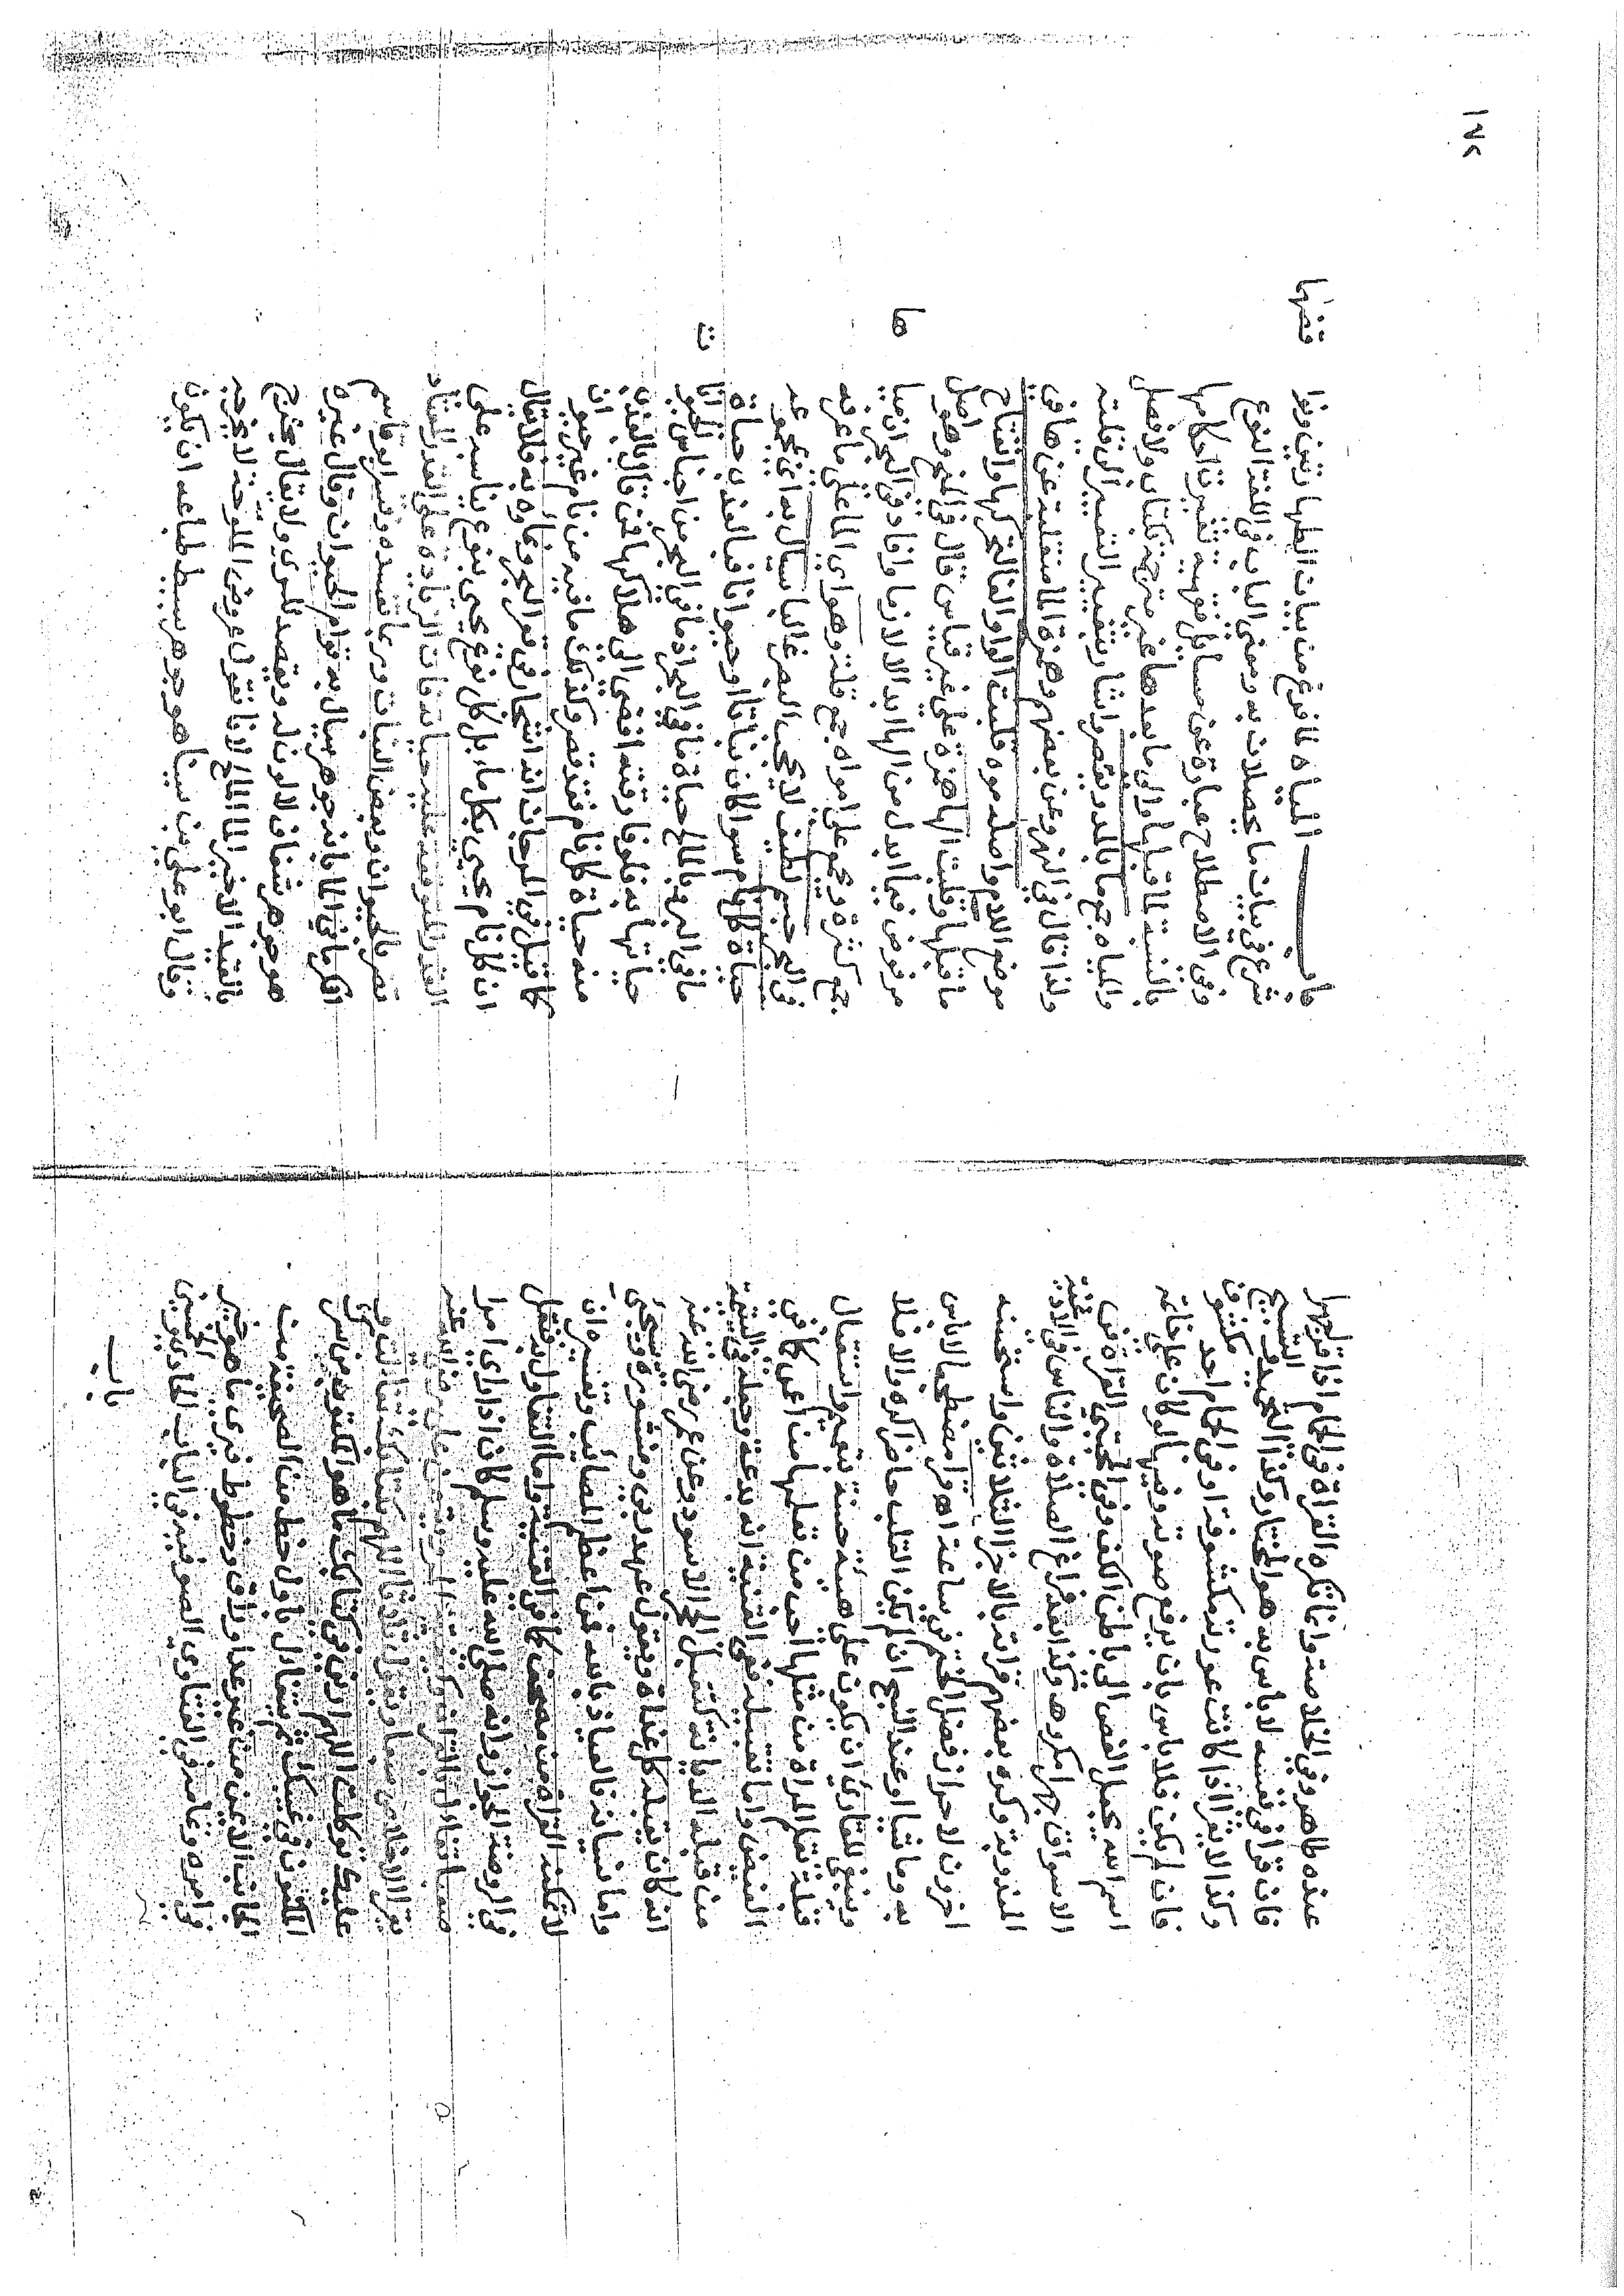 عنده طاهر وفي الخلاصة وانما تكره القراة في الحمام اذا قرا جهرا
فان قرا في نفسه لا باس به هو المختار وكذا التحميد والتسبيح
وكذا لا يقرا اذا كانت عورته مكشوفة او في الحمام احد مكشوف
فان لم يكن فلا باس بان يرفع صوته وفيها لو كان على خاتمه
اسم الله يجعل الفص الى باطن الكف وفي المجتبى القراة في
الاسواق جهرا مكروهة وكذا بعد فراغ الصلاة والناس في الادعية
المندوبة وكره بعضهم قراة الاجزا الثلاثين واستحسنه
اخرون لاحراز فضل الختم في ساعة اهـ قرا مضطجعا لا باس
به وماشيا وعند النسج ان لم يكن القلب حاضرا كره والا فلا
وينبغي للقارئ ان يكون على هيئة حسنة بتعمم واستقبال
قبلة تعلم المراة من مثلها احب من تعلمها من اعمى كما في
الفيض واما تقبيله ففي القنية انه بدعة وجعله في التتمة
من قبلة الديانة كتقبيل الحجر الاسود وعن عمر رضي الله عنه
انه كان يقبله كل غداة ويقول عهد ربي ومنشوره ويبكي
واما نسيانه فالعياذ بالله فمن اعظم المصائب وتفسيره ان
لا يمكنه القراة من مصحف كما في القنية واما التفاول به فنقل
في الروضة الجواز وانه صلى الله عليه وسلم كان اذا اراد امرا
صعبا تفال بالقران وكيفيته المروية عن علي رضي الله عنه
يقرا الاخلاص سبعا ويقول ثلاثا اللهم بكتابك تفالت و
عليك توكلت اللهم ارني في كتابك ما هو المكتوم من سرك
المكنون في غيبك ثم يتفاءل باول خط من الصحيفة من
الجانب الايمن من غير عد اوراق وخطوط فيرى ما هو خير
في امره وتمامه في الفتاوي الصوفية في الباب الحادي والخمسين
باب
١٧٢
باب المياه لما فرغ من بيان الطهارتين
شرع في بيان ما يحصلان به ومعنى الباب في اللغة النوع
وفي الاصطلاح عبارة عن مسائل فقهية تغيرت احكامها
بالنسبة لما قبلها والى ما بعدها غير مترجمة بكتاب ولا فصل
والمياه جمع ما بالمد ويقصر واشار بتفسير
ولذا قال في النهر وعن بعضهم وهمزة الما منقلبة عن ها في
موضع اللام واصله موه قلبت الواو الفا لتحركها وانفتاح
ما قبلها وقلبت الها همزة على غير قياس قال في النهر وهو
مرفوض فيما ابدل من الها ابدالا لازما وافاد في البحر ان ميا
جمع كثرة ويجمع على امواه جمع قلة وهو اي الما على ما عرفه
في البحر جسم لطيف لا يحجب البصر غالبا سيال به اي بنحوعه
حياة كل نام سوا كان نباتا او حيوانا فبالعذب حياة
ما في البر وبالمالح حياة ما في البحر اذ ما في البحر من اجناس
حياتها به فلو فارقته افضى الى هلاكها فمن قال بالعذب
منه حياة كل نام فقد قصر
كما قيل في المرجان انه اشجار في قعر البحر
ان كل نام يحيى بكل ماء بل كل نوع يحيى بنوع يناسبه على
القدر المتوقف عليه حياته فان الزيادة على القدر المعتاد
تضر بالحيوان وببعض النبات وربما تفسده وفسر ابو قاسم
الكرماني الما بانه جوهر سيال به قوام الحيوان وقال غيره
هو جوهر شفاف لا لون له ويقصد للري ولا يقال يخرج
بالقيد الاخير الما المالح لانا نقول عروض الملوحة لا يخرجه
وقال ابو علي بن سينا هو جوهر بسيط طباعه ان يكون